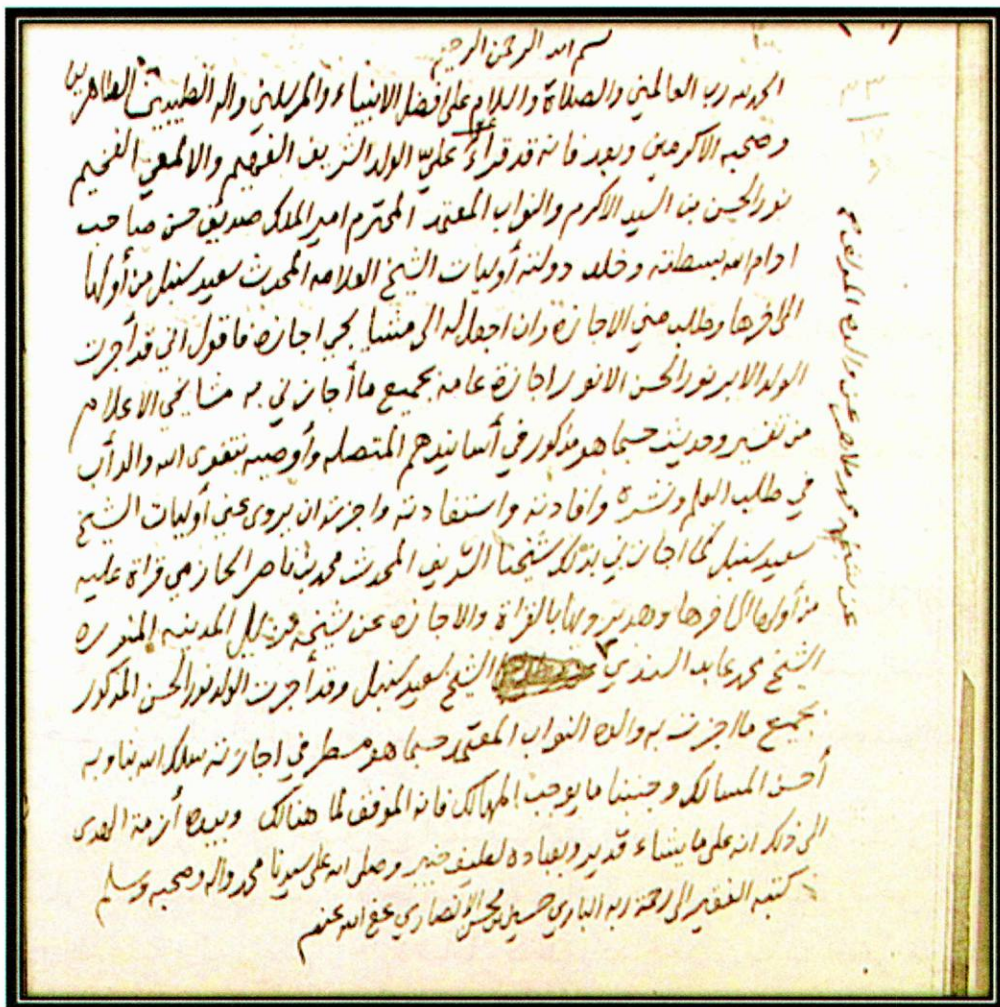 بسم الله الرحمن الرحيم
الحمد لله رب العالمين والصلاة والسلام على افضل الانبياء والمرسلين واله الطيبين الطاهرين
وصحبه الاكرمين وبعد فانه قد قرأ عليّ الولد الشريف الفهيم والالمعي الفخيم
نور الحسن بن السيد الاكرم والنواب المعتمد المحترم امير الملك صديق حسن صاحب
ادام الله سلطانه وخلد دولته أوليات الشيخ العلامه المحدث سعيد سنبل من أولها
الى اخرها وطلب مني الاجازة وان اجعل له الى مشايخي اجازة فاقول اني قد أجزت
الولد الابر نور الحسن الانور اجازة عامة بجميع ما أجازني به مشايخي الاعلام
من تفسير وحديث حسبما هو مذكور في أسانيدهم المتصله وأوصيه بتقوى الله والدأب
في طلب العلم ونشره وافادته واستفادته واجزته ان يروي عني أوليات الشيخ
سعيد سنبل كما اجازني بذلك شيخنا الشريف المحدث محمد بن ناصر الحازمي قراة عليه
من أولها الى اخرها وهو يرويها بالقراة والاجازه عن شيخه نزيل المدينه المنوره
الشيخ محمد عابد السندي الشيخ سعيد سنبل وقد أجزت الولد نور الحسن المذكور
بجميع ما اجزت به والده النواب المعتمد حسبما هو مسطر في اجازته سلك الله بنا وبه
أحسن المسالك وجنبنا ما يوجب المهالك فانه الموفق لما هنالك وبيده أزمة الهدى
الى ذلك انه على ما يشاء قدير وبعباده لطيف خبير وصلى الله على سيدنا محمد واله وصحبه وسلم
كتبه الفقير الى رحمة ربه الباري حسين بن محسن الانصاري عفى الله عنهم
عن شيخه محمد طاهر عن والده المؤلف